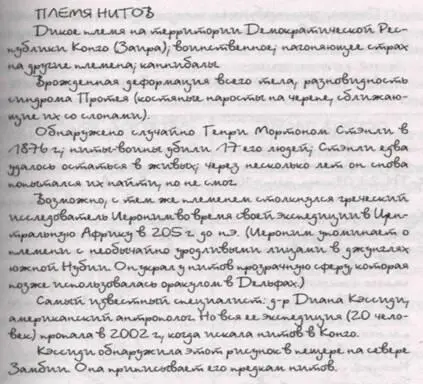 ПЛЕМЯ НИТОВ
Дикое племя на территории Демократической Рес-
публики Конго (Заира); воинственное; нагоняющее страх
на другие племена; каннибалы.
Врожденная деформация всего тела, разновидность
синдрома Протея (костяные наросты на черепе, сближаю-
щие их со слонами).
Обнаружено случайно Генри Мортоном Стэнли в
1876 г; ниты-воины убили 17 его людей; Стэнли едва
удалось остаться в живых; через несколько лет он снова
попытался их найти, но не смог.
Возможно, с тем же племенем столкнулся греческий
исследователь Иероним во время своей экспедиции в Цен-
тральную Африку в 205 г. до н.э. (Иероним упоминает о
племени с необычайно уродливыми лицами в джунглях
южной Нубии. Он украл у нитов прозрачную сферу, которая
позже использовалась оракулом в Дельфах.)
Самый известный специалист: д-р Диана Кэссиди,
американский антрополог. Но вся ее экспедиция (20 чело-
век) пропала в 2002 г., когда искала нитов в Конго.
Кэссиди обнаружила этот рисунок в пещере на севере
Замбии. Она приписывает его предкам нитов.